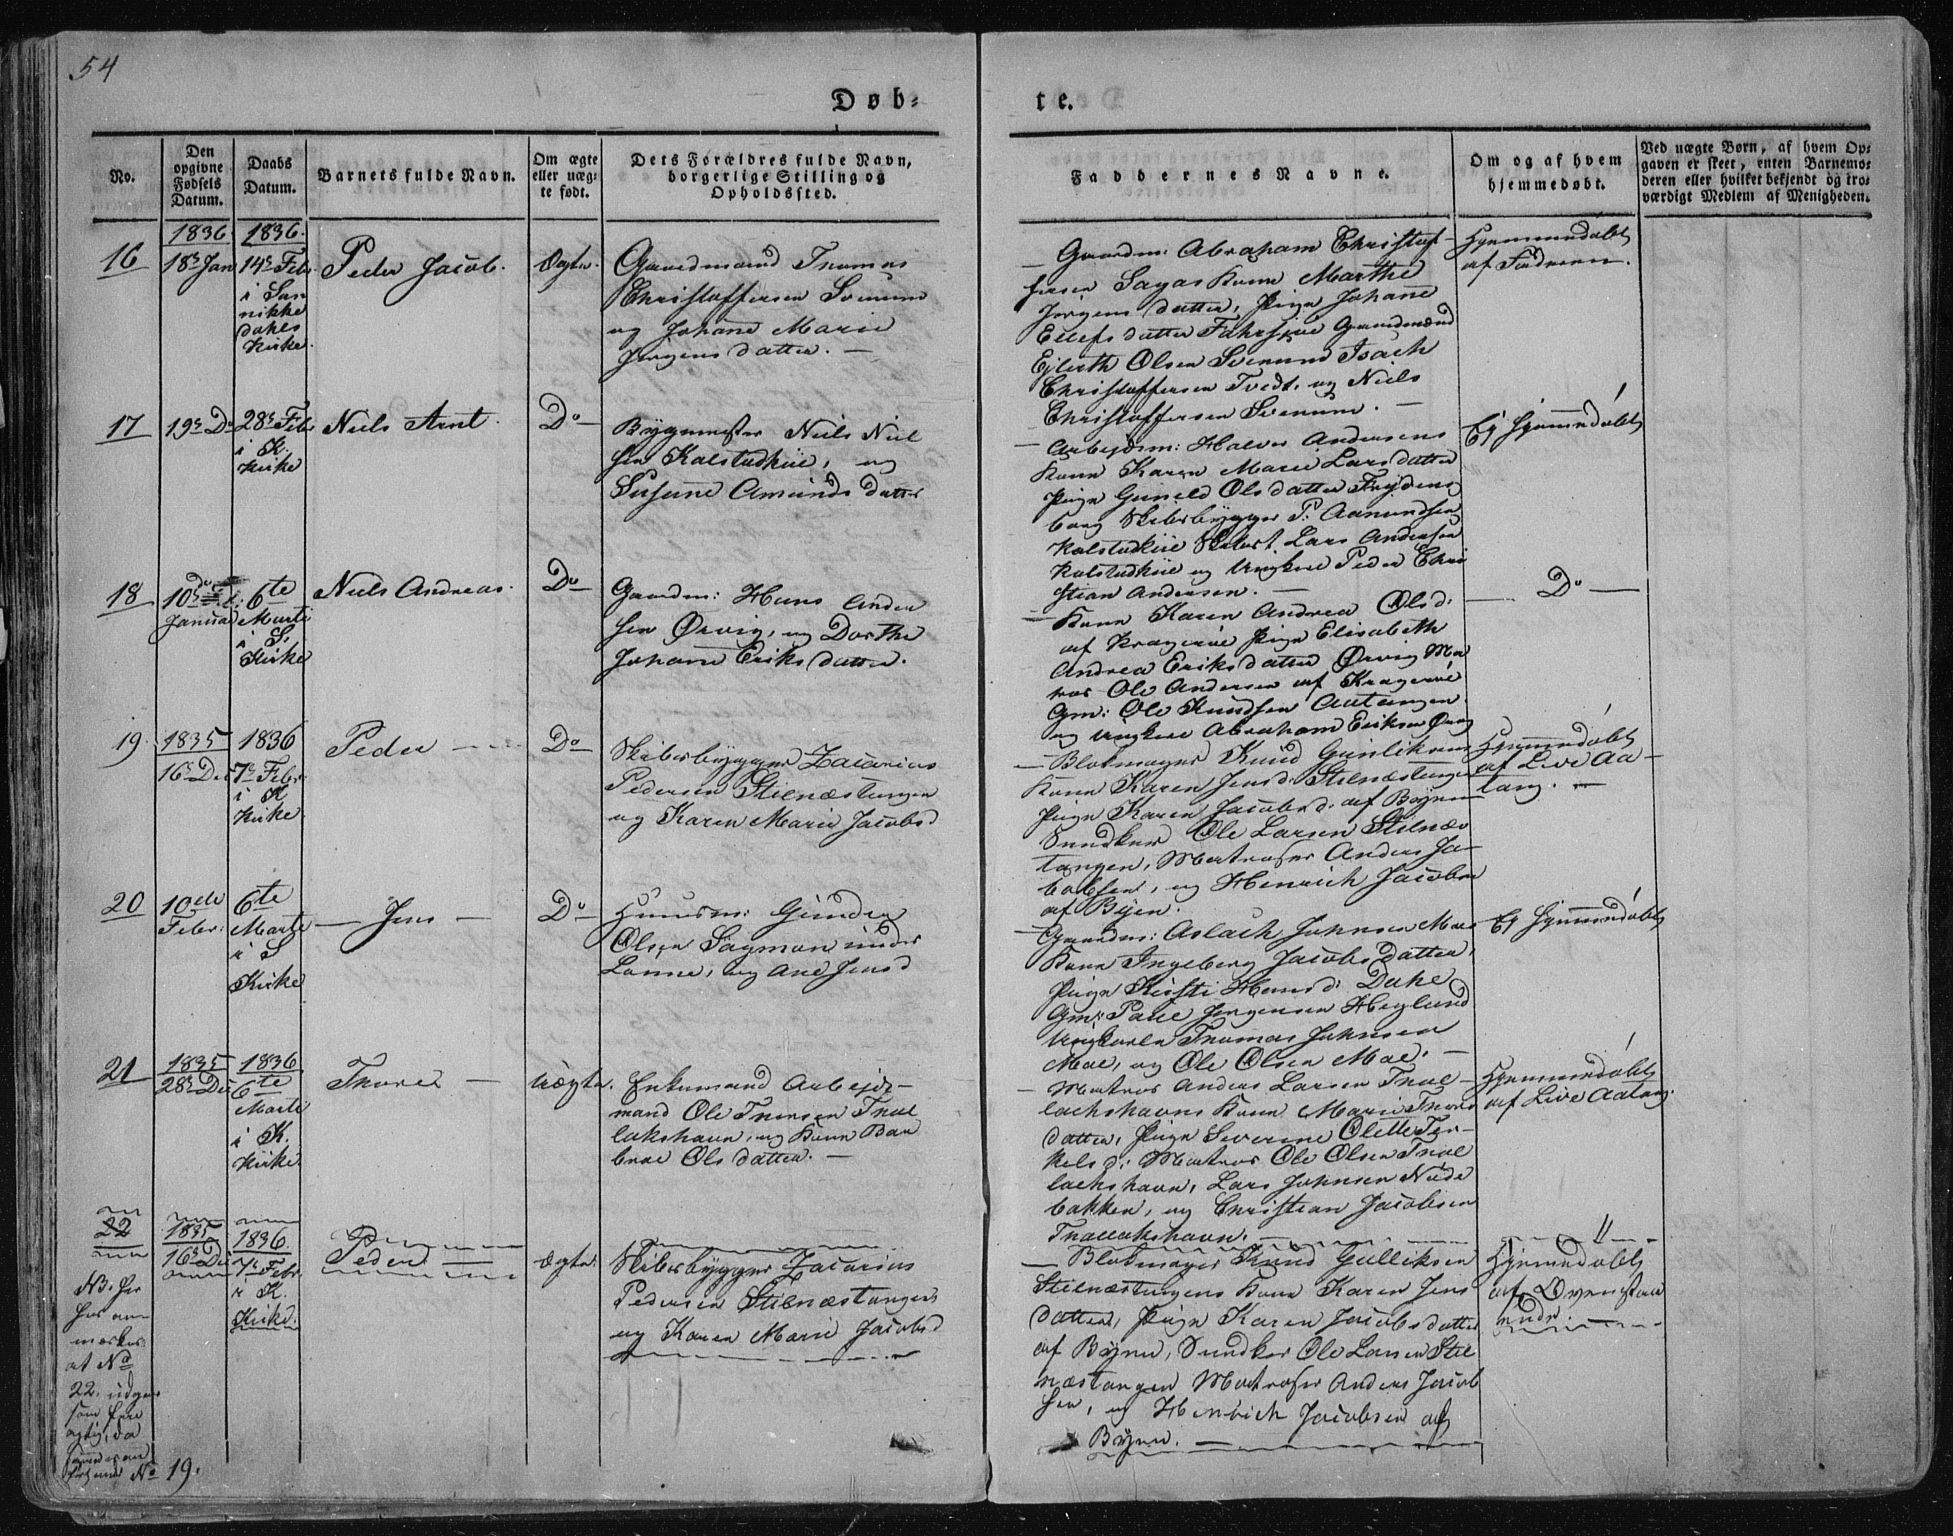 54
Døb=
te.
No.
Den opgivne Fødsels Datum.
Daabs Datum.
Barnets fulde Navn.
Om ægte eller uægte født.
Dets Forældres fulde Navn, borgerlige Stilling og Opholdssted.
Faddernes Navne.
Om og af hvem hjemmedøbt.
Ved uægte Børn, af hvem Opgaven er skeet, enten Barnemoderen eller hvilket bekjendt og troværdigt Medlem af Menigheden.
1836
1836.
16
18r Jan
14r Febr.
i San
nikke
dahls
Kirke.
Peder Jacob.
Ægte.
Gaardmand Thomas
Christoffersen
og Johane Marie
Jørgensdatter. —
— Gaardm: Abraham Christof-
fersen Kone Marthe
Jørgensdatter, Pige Johane
Ellefsdatter Gaardmænd
Ejlerth Olsen Isach
Christoffersen Tvedt, og Niels
Christoffersen
Hjemmedøbt
af Faderen.
17
19r Do
28r Febr
i K.
Kirke
Niels Arnt.
Do
Bygmester Niels Niel
sen Kalstadkiil, og
Susanne Amundsdatter
— Arbejdsm: Halvor Andersens
Kone Karen Marie Larsdatter
Pige Guneld Olsdatter Frydens
borg Skibsbygger P. Aamundsen
Kalstadkiil Lars Andersen
Kalstadkiil og Ungkarl Peder Chri
stian Andersen. —
Ej hjemmedøbt
18
10de
Januar
6te
Marti
i S.
Kirke
Niels Andreas.
Do
Gaardm: Hans Ander
sen Ørvig, og Dorthe
Johane Eriksdatter.
— Kone Karen Andrea Olsd:
af Kragerøe Pige Elisabeth
Andrea Eriksdatter Ørvig Ma
tros Ole Andersen af Kragerøe
Gm: Ole Knudsen
og Ungkarl Abraham Eriksen Ørvig
— Do —
19
1835
16r Dec
1836
7r Febr.
i K
Kirke.
Peder —
Do
Skibsbygger Zacarias
Pedersen Stilnæstangen
og Karen Marie Jacobsd
— Blokmager Knud Gunliksens
Kone Karen Jensd: Stilnæstangen
Pige Karen Jacobsd. af Byen
Ole Larsen Stilnæs
tangen, Matroser Anders Ja-
cobsen, og Henrich Jacobsen
af Byen.
Hjemmedøbt
af Live Aa-
tang. —
20
10de
Febr:
6te
Marti
i S
Kirke
— Jens —
Do
Huusm: Gunder
Olsen under
Lønne, og Ane Jensd
— Gaardm: Aslach Johnsen Moe
Kone Ingeborg Jacobsdatter,
Pige Kirsti Hansd: Dahl
Gm: Povel Jørgensen Heglund
Ungkarle Thomas Johnsen
Moe, og Ole Olsen Moe. —
Ej hjemmedøbt
21
1835
28r Dec
1836
6te
Marti
i K.
Kirke
Thore —
Uægte.
Enkemand Arbejds-
mand Ole Thorsen Tral
lakshavn, og Kone Bar
broe Olsdatter. —
— Matros Anders Larsen Tral-
lachshavns Kone Marie Thors
datter, Pige Severine Olette Ter-
kelsd: Matros Ole Olsen Tral
lachshavn, Lars Johnsen
bakken, og Christian Jacobsen
Trallakshavn. —
Hjemmedøbt
af Live Aatang.
22
1835
16r Dec
1836
7r Febr.
i K.
Kirke.
Peder —
Ægte.
Skibsbygger Zacarias
Pedersen Stilnæstangen
og Karen Marie Jacobsd
— Blokmager Knud Gulliksen
Stilnæstangens Kone Karen Jens
datter, Pige Karen Jacobsdatter
af Byen, Ole Larsen Stil
næstangen Matroser Anders Jacob
sen, og Henrich Jacobsen af
Byen. —
"
Hjemmedøbt
af Ovenstaa
ende. —
NB. her
at No
22. udgaar
da
No 19.